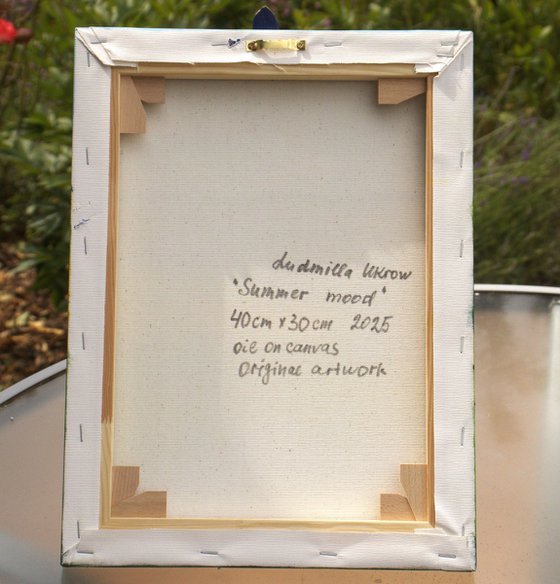 Ludmilla Ukrow
"Summer mood"
40cm x 30cm 2025
oil on canvas
Original artwork